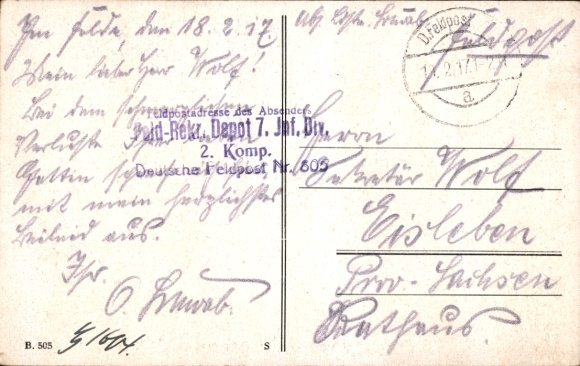 Im Felde, den 18.2.17.
Mein lieber Herr Wolf!
Bei dem schmerzlichen
Verluste Ihrer
Gattin spreche
mit mein herzlichstes
Beileid aus.
Ihr
O. Schwab.
Feldpostadresse des Absenders
Feld-Rekr. Depot 7. Inf. Div.
2. Komp.
Deutsche Feldpost Nr. 805
Abs. Schwab
Feldpost
D. Feldpost
2.17
a
Herrn
Sekretär Wolf
Eisleben
Prov. Sachsen
Rathaus.
B. 505
S